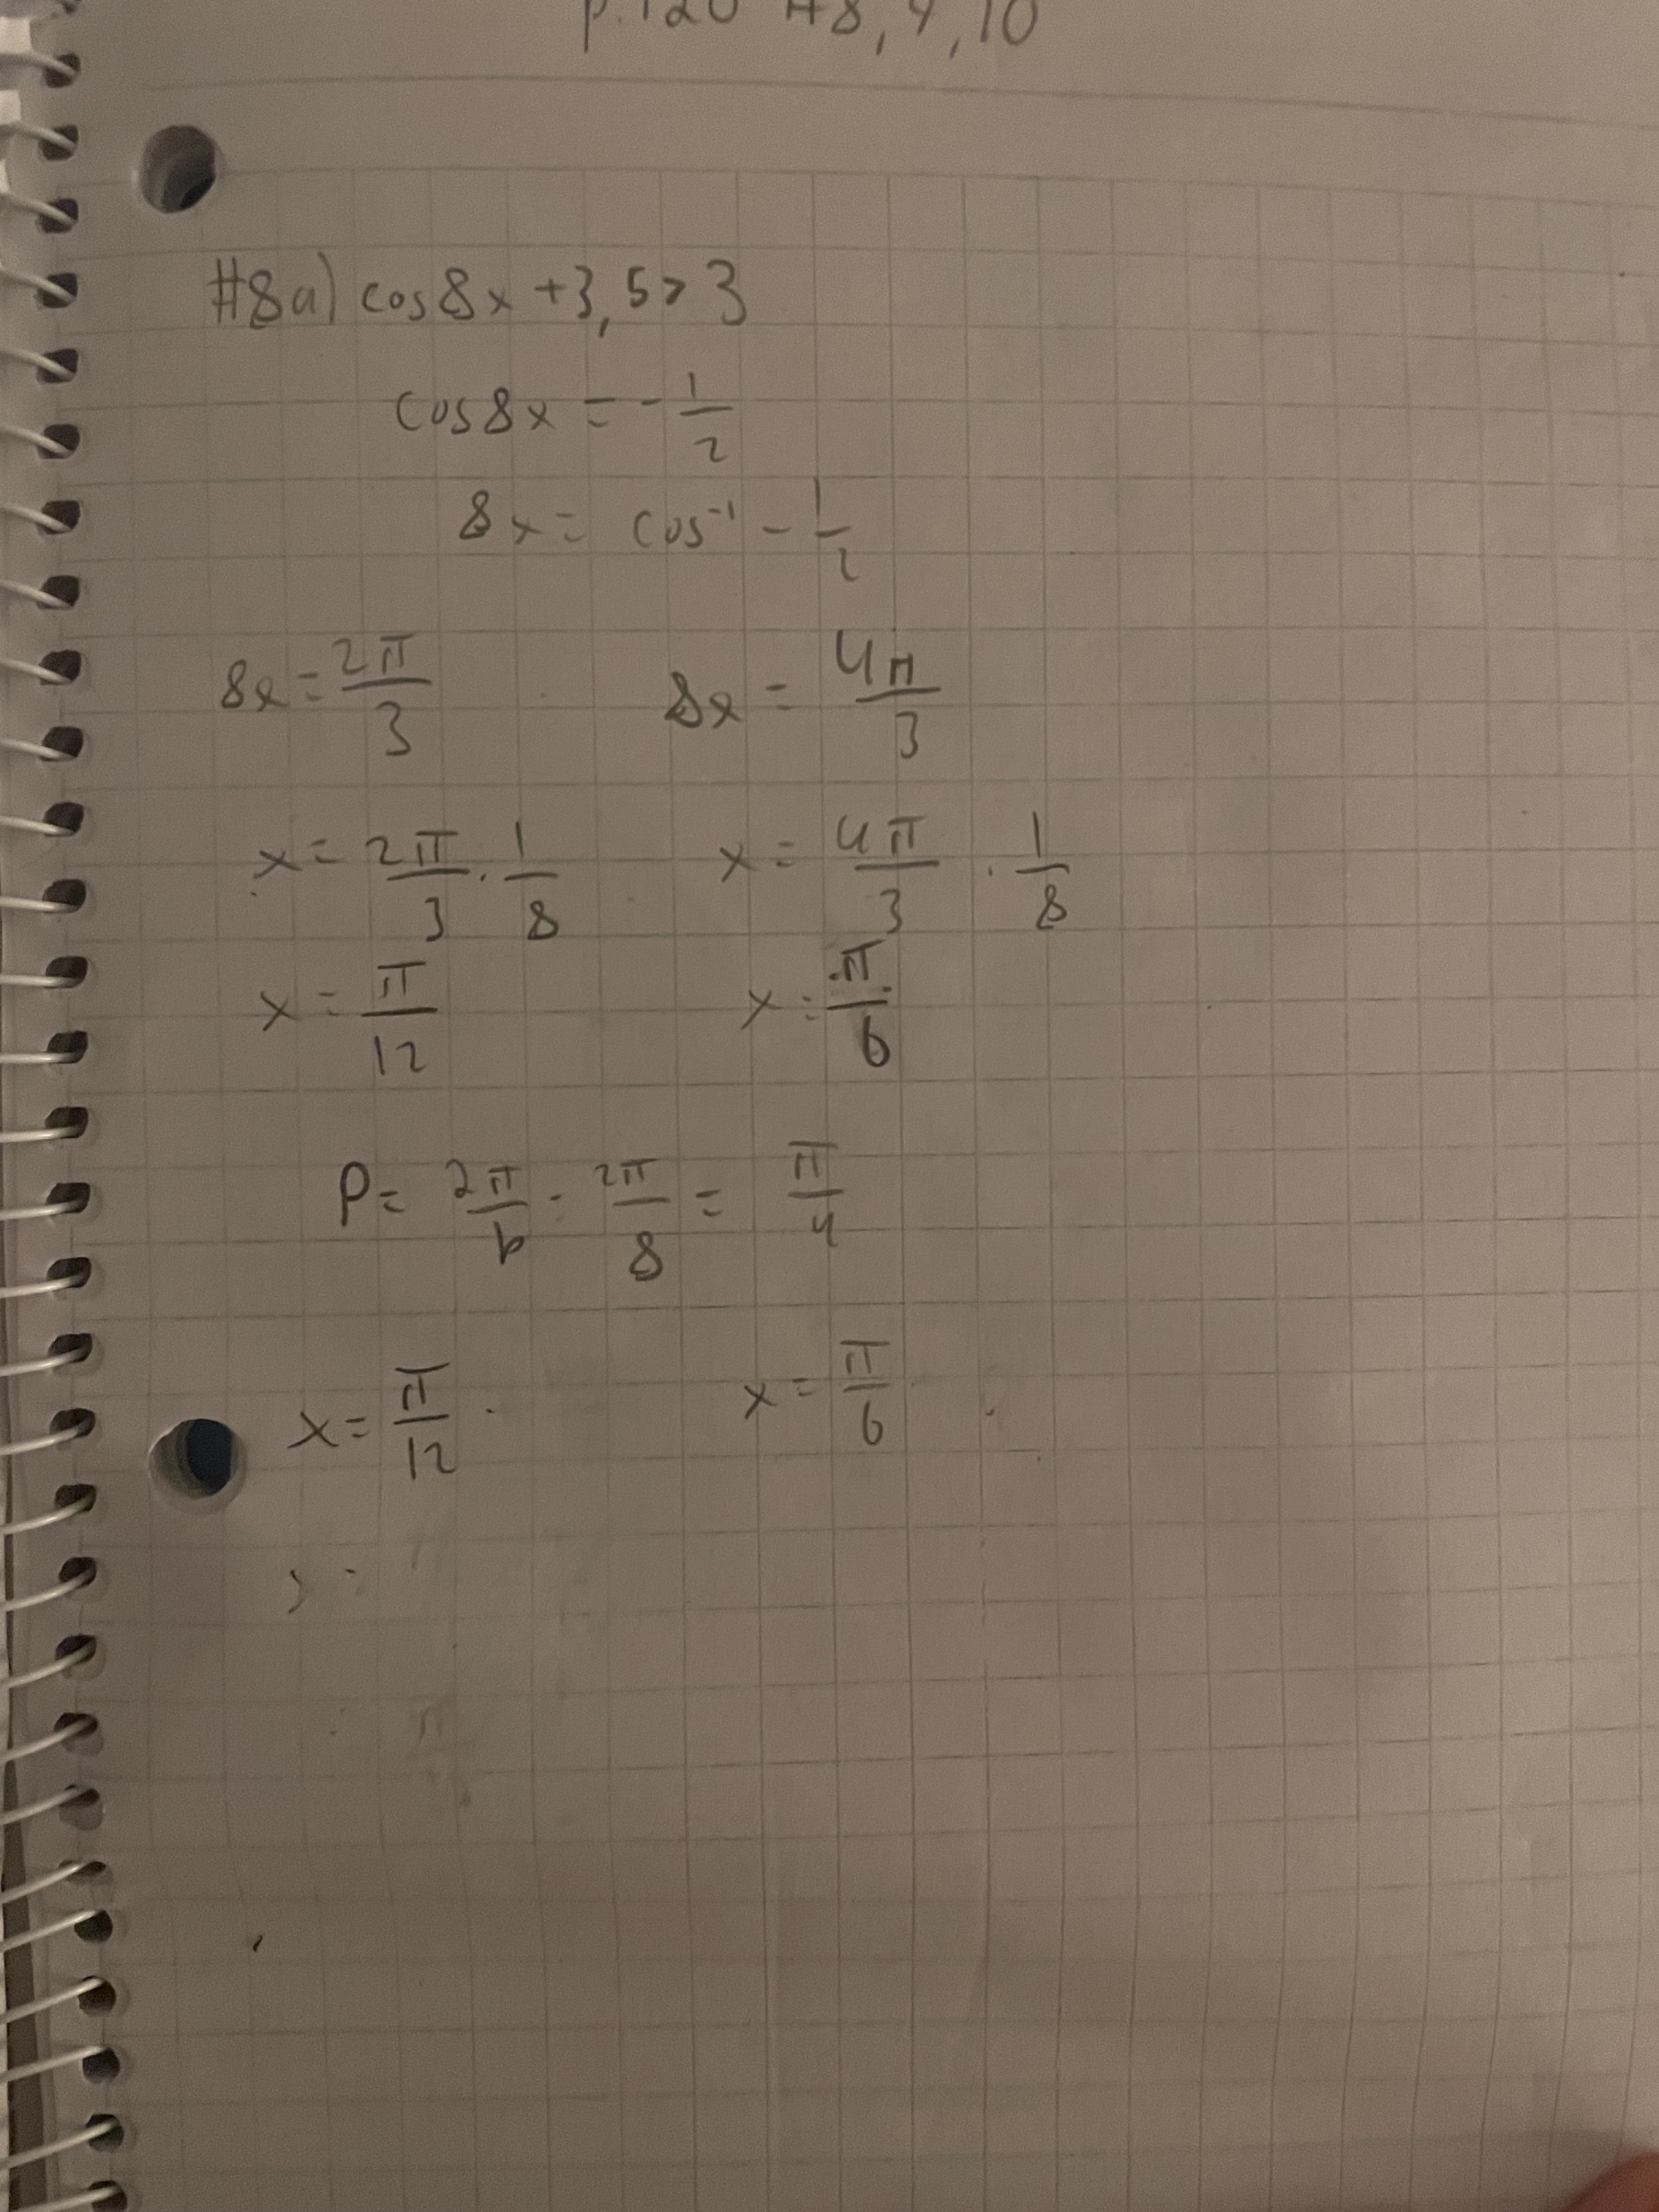 p.120 #8, 9, 10
#8a) cos8x + 3,5 > 3
cos8x = - 1/2
8x = cos⁻¹ - 1/2
8x = 2π/3 8x = 4π/3
x = 2π/3 · 1/8 x = 4π/3 · 1/8
x = π/12 x = π/6
P = 2π/b = 2π/8 = π/4
x = π/12 x = π/6